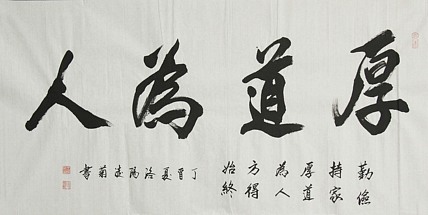 厚道為人
勤儉
持家
厚道
為人
方得
始終
丁酉夏洛陽菊書